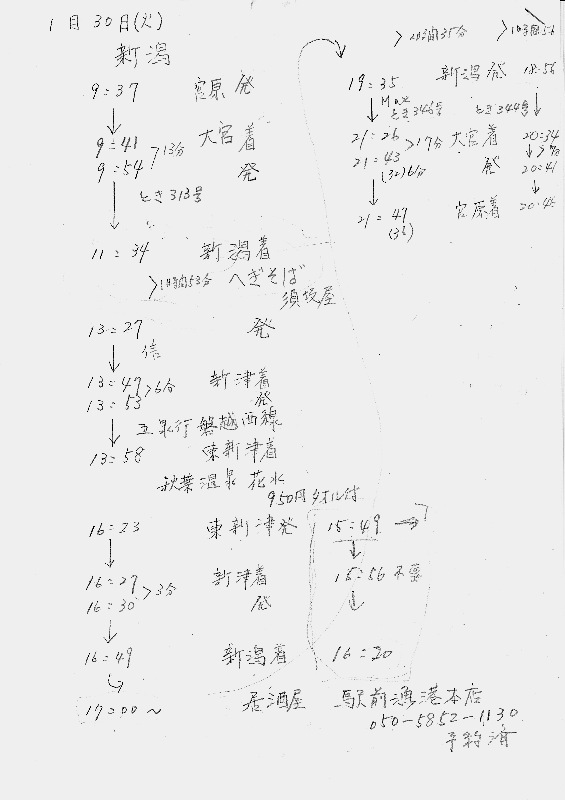 1月30日(火)
新潟
9:37 宮原 発
9:41 大宮着
>13分
9:54 発
とき313号
11:34 新潟着
>1時間53分 へぎそば
須坂屋
13:27 発
信
13:47 新津着
>6分
13:53 発
五泉行 磐越西線
13:58 東新津着
秋葉温泉 花水
950円タオル付
16:23 東新津発 15:49
16:27 新津着 15:56 不要
>3分
16:30 発
16:49 新潟着 16:20
17:00~ 居酒屋 駅前漁港本店
050-5852-1130
予約済
>2時間35分 >1時間56
19:35 新潟発 18:56
Max
とき346号 とき344号
21:26 大宮着 20:34
>17分
21:43 発 20:41
(32) 6分
21:47 宮原着
(36)